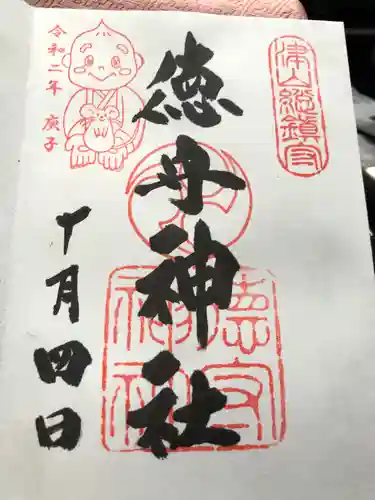 津山総鎮守
徳守神社
令和二年 庚子
十月四日
徳守
神社